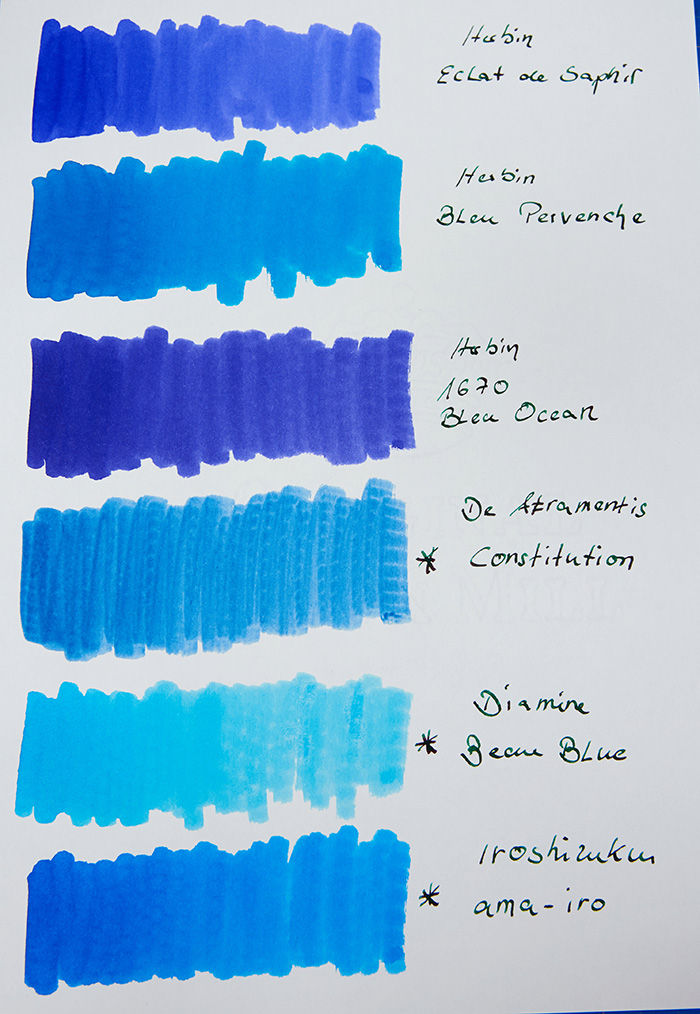 Herbin
Eclat de Saphir
Herbin
Bleu Pervenche
Herbin
1670
Bleu Ocean
De Atramentis
* Constitution
Diamine
* Beau Blue
Iroshizuku
* ama-iro
MILL